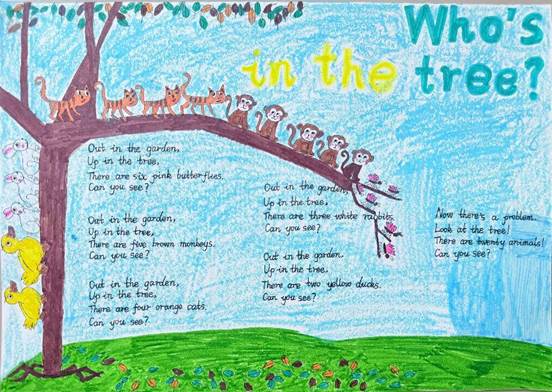 Who's
in the tree?
Out in the garden,
Up in the tree,
There are six pink butterflies.
Can you see?
Out in the garden,
Up in the tree,
There are five brown monkeys.
Can you see?
Out in the garden,
Up in the tree,
There are four orange cats.
Can you see?
Out in the garden,
Up in the tree,
There are three white rabbits.
Can you see?
Out in the garden.
Up in the tree,
There are two yellow ducks.
Can you see?
Now there's a problem.
Look at the tree!
There are twenty animals!
Can you see?